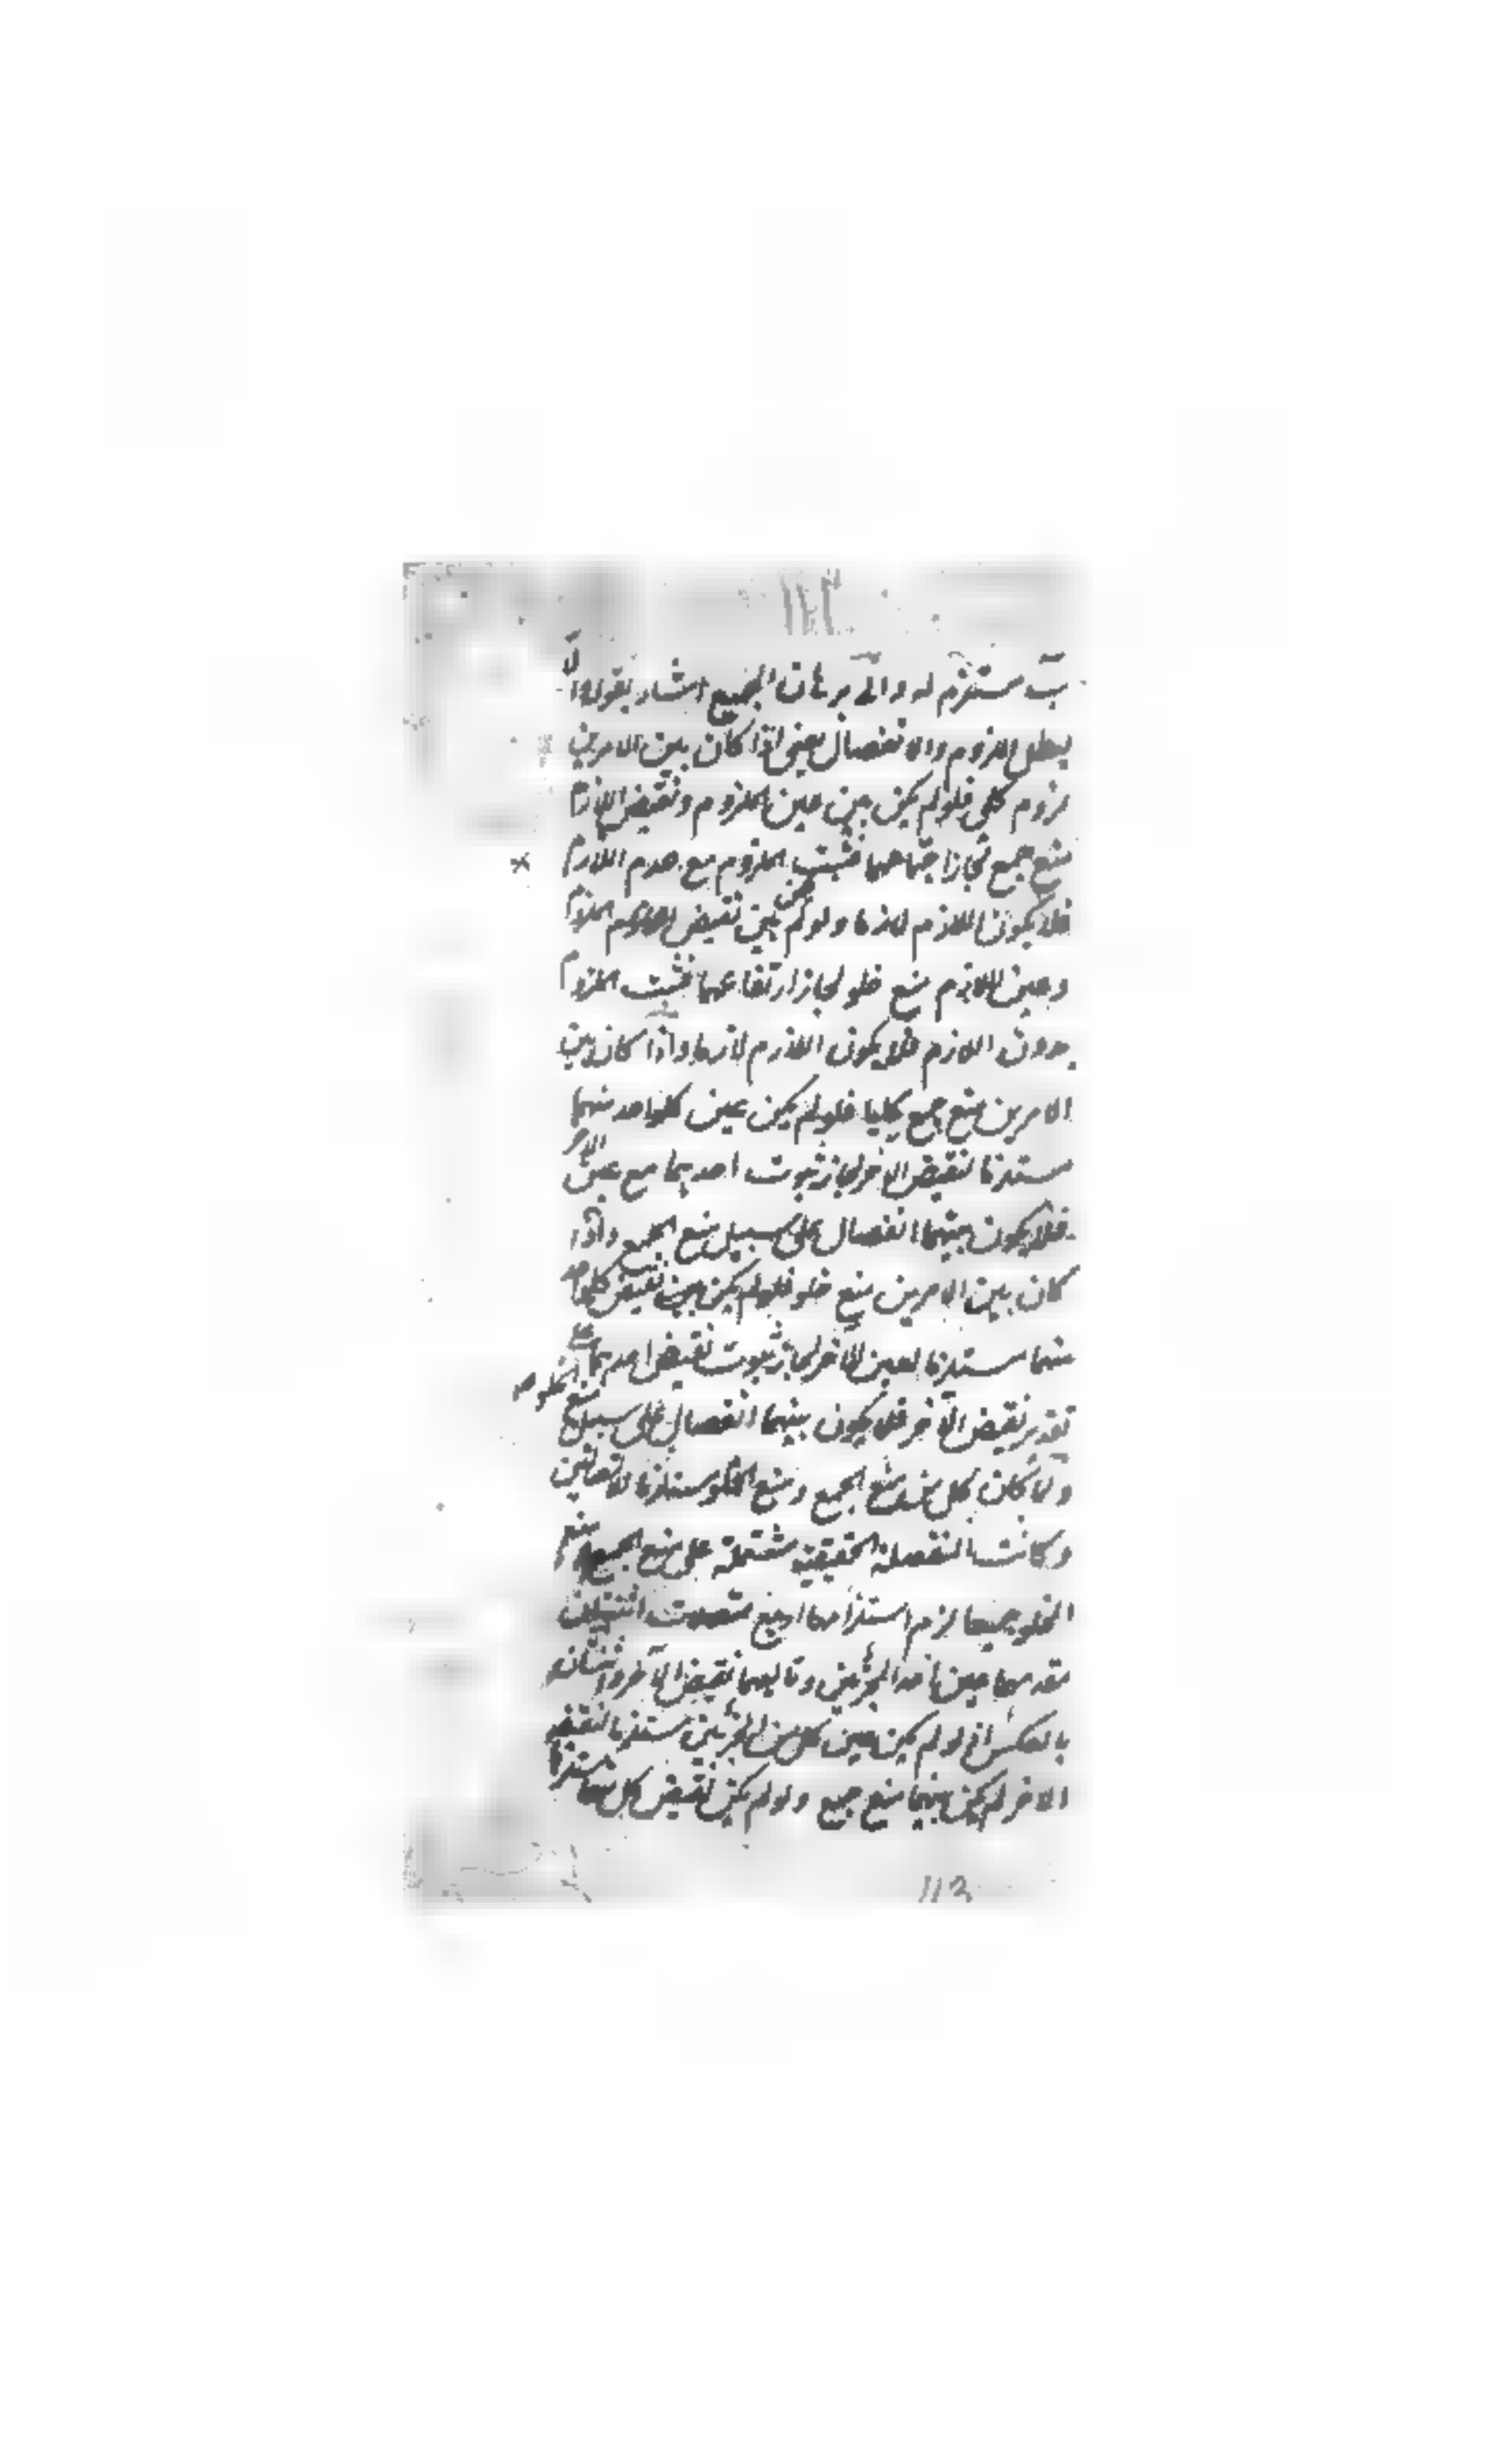 ب مستلزم له والى برهان الجميع اشار بقوله والا
يبطل اللزوم والانفصال يعنى اذا كان بين الامرين
لزوم كلى فلو لم يكن بين عين الملزوم ونقيض اللازم
منع جمع لجاز اجتماعهما فيثبت الملزوم مع عدم اللازم
فلا يكون اللازم لازما ولو لم يكن بين نقيض الملزوم
وعين اللازم منع خلو لجاز ارتفاعهما فيثبت الملزوم
بدون اللازم فلا يكون اللازم لازما واذا كان بين
الامرين منع جمع كليا فلو لم يكن عين كل واحد منهما
مستلزما لنقيض الاخر لجاز ثبوت احديهما مع عين الاخر
فلا يكون بينهما انفصال على سبيل منع الجمع واذا
كان بين الامرين منع خلو فلو لم يكن بين نقيض كل واحد
منهما مستلزما لعين الآخر لجاز ثبوت نقيض احديهما على
تقدير نقيض الآخر فلا يكون بينهما انفصال على سبيل منع الخلو
ولما كان كل من منع الجمع ومنع الخلو مستلزما
وكانت المنفصلة الحقيقية مشتملة على منع الجمع ومنع
الخلو جميعا لزم استلزامها اربع متصلات اثنتان
مقدمهما عين احد الجزئين وتاليهما نقيض الآخر واثنتان
بالعكس اذ لو لم يكن عين كل من الجزئين مستلزما لنقيض
الاخر لم يكن بينهما منع جمع ولو لم يكن نقيض كل منهما مستلزما
112